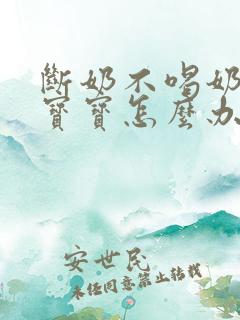 斷奶不喝奶
寶寶怎麼办
安世民
未经同意禁止转载